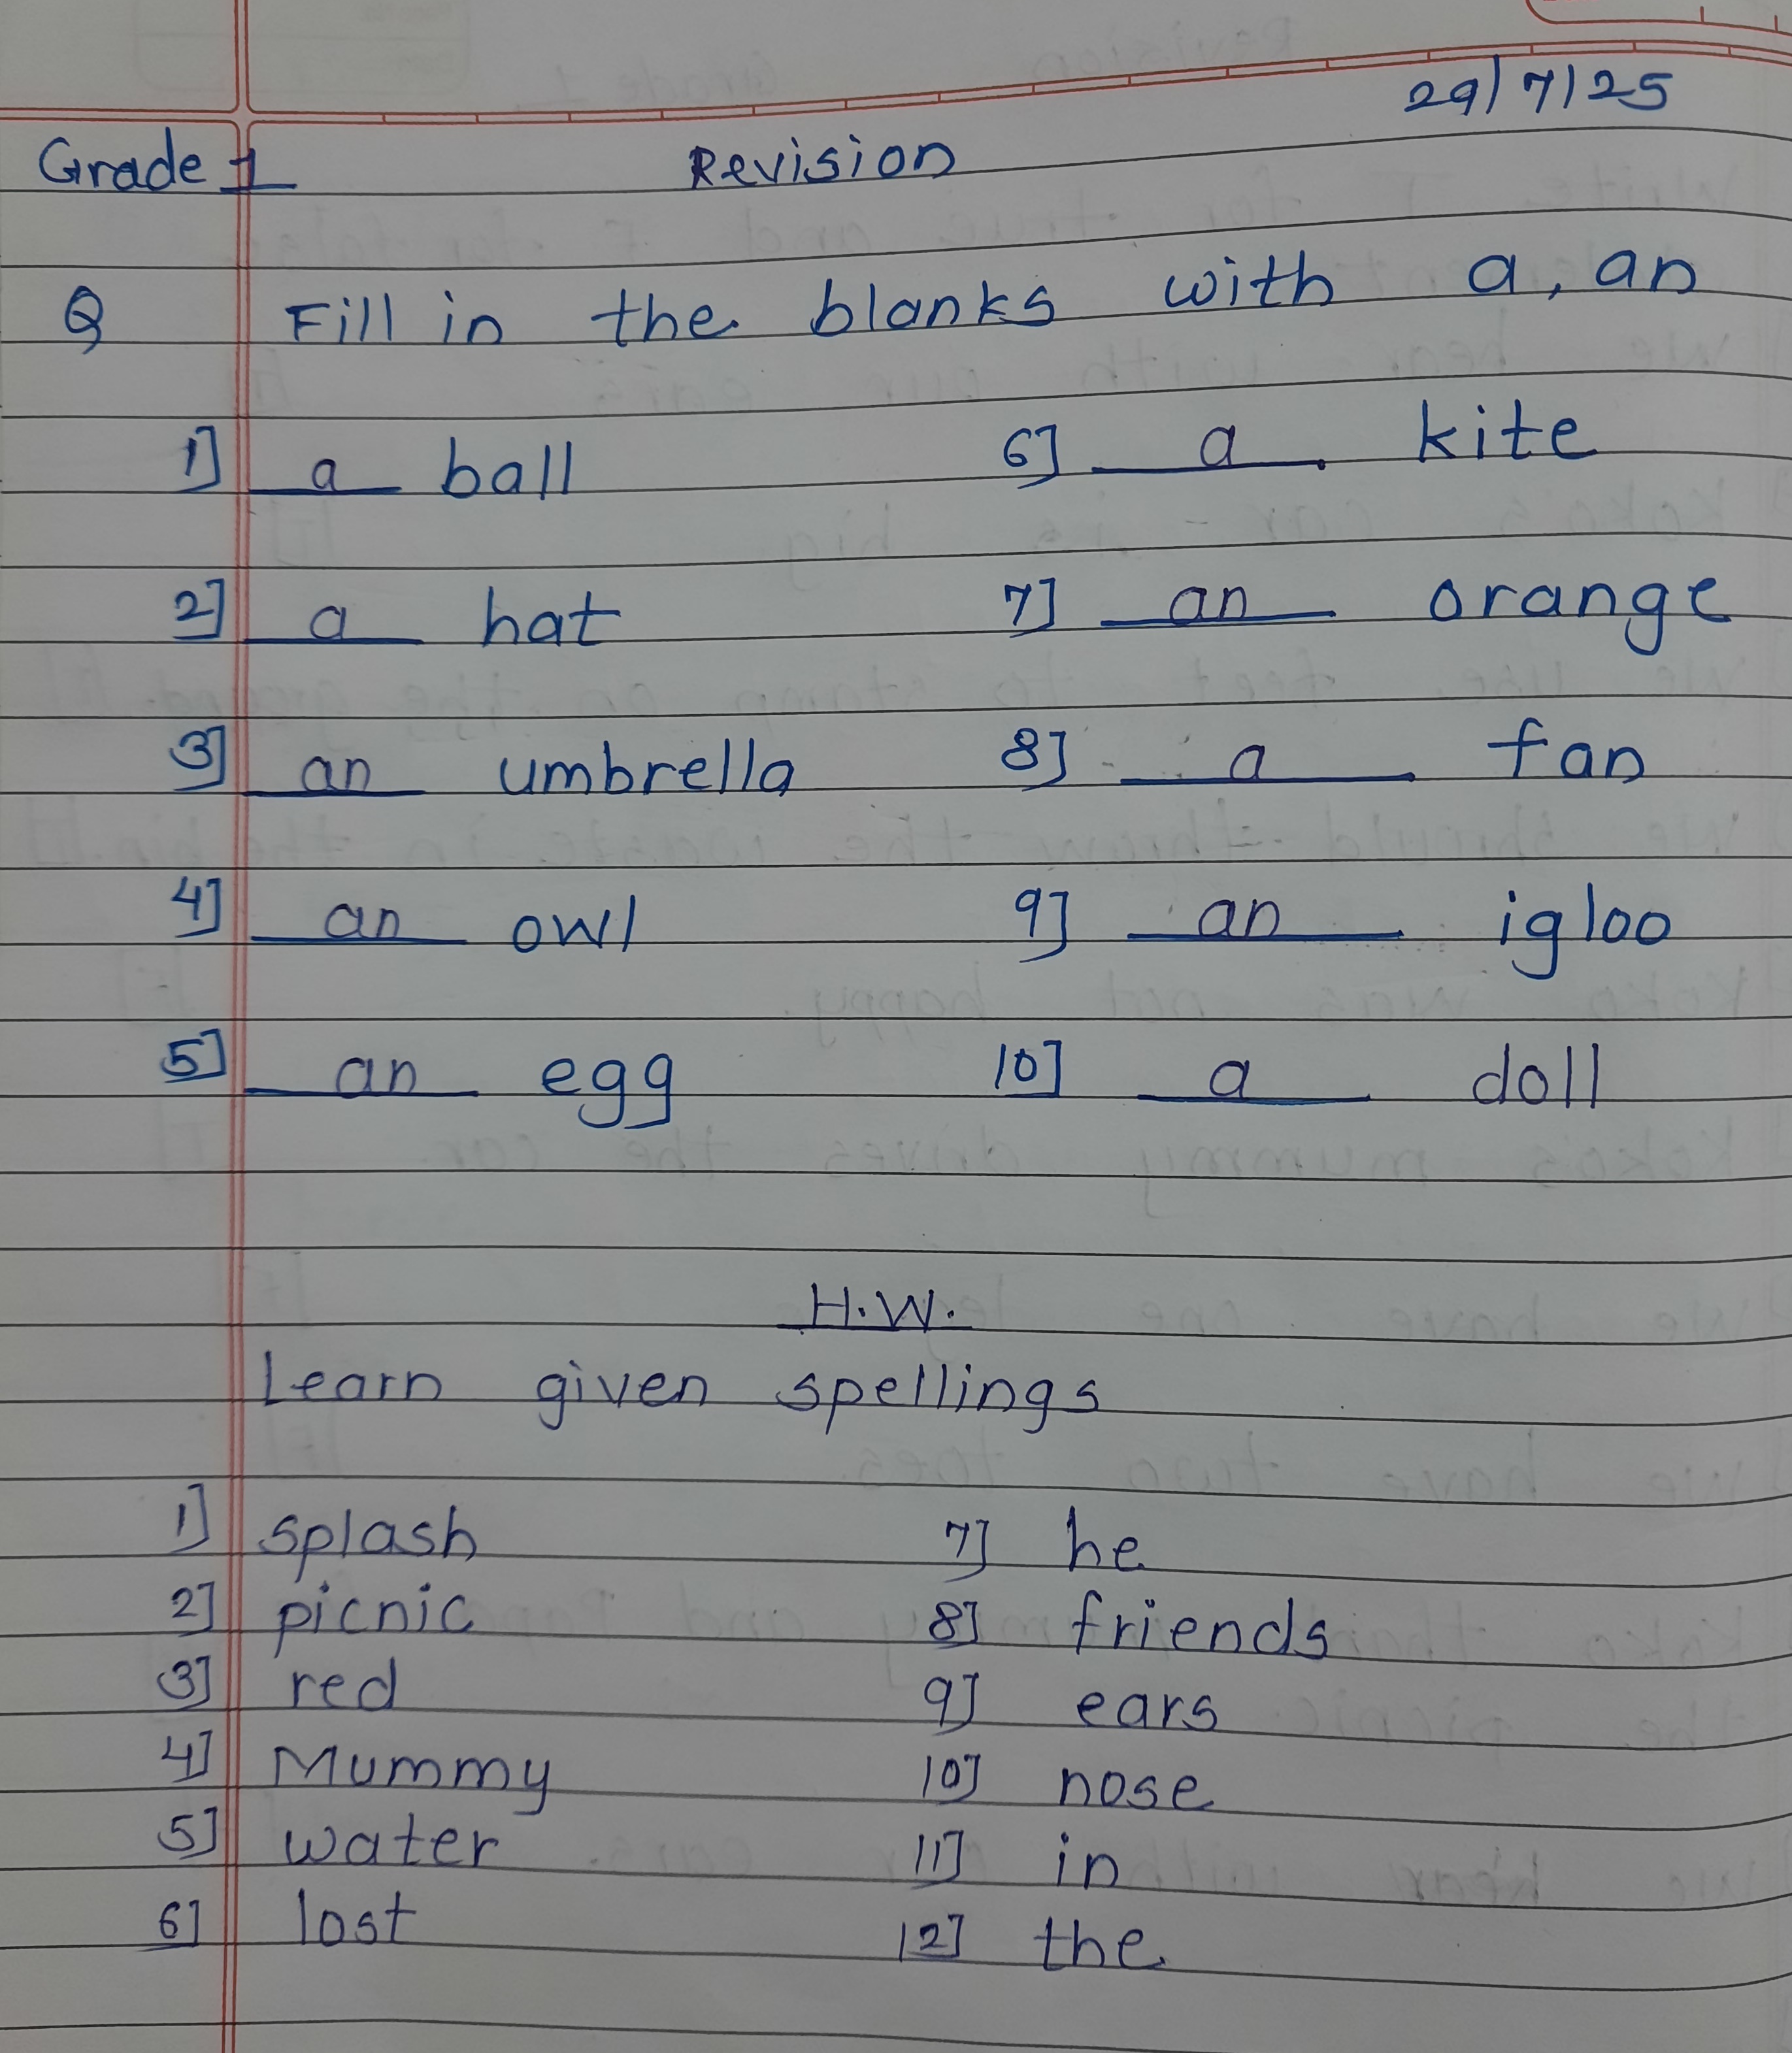 29/7/25
Grade 1 Revision
Q Fill in the blanks with a, an
1] a ball 6] a kite
2] a hat 7] an orange
3] an umbrella 8] a fan
4] an owl 9] an igloo
5] an egg 10] a doll
H.W.
Learn given spellings
1] splash 7] he
2] picnic 8] friends
3] red 9] ears
4] Mummy 10] nose
5] water 11] in
6] lost 12] the